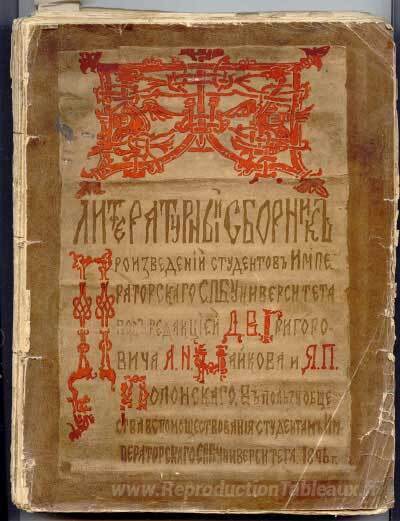 ЛИТЕРАТУРНЫЙ СБОРНИКЪ
ПРОИЗВЕДЕНІЙ СТУДЕНТОВЪ ИМПЕ
РАТОРСКАГО СПБ УНИВЕРСИТЕТА
ПОДЪ РЕДАКЦІЕЙ Д.В. ГРИГОРО-
ВИЧА А.Н. МАЙКОВА И Я.П.
ПОЛОНСКАГО. ВЪ ПОЛЬЗУ ОБЩЕ
СТВА ВСПОМОЩЕСТВОВАНІЯ СТУДЕНТАМЪ ИМ-
ПЕРАТОРСКАГО СПБ УНИВЕРСИТЕТА. 1896 г.
www.ReproductionTableaux.fr